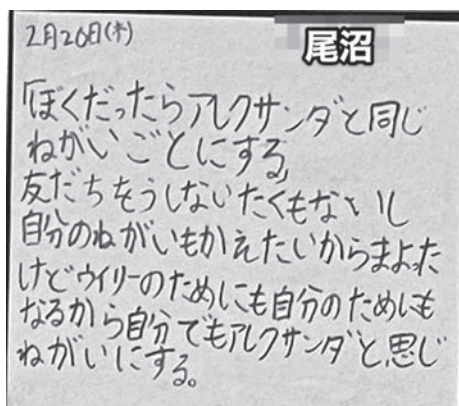 2月26日(木)
尾沼
「ぼくだったらアレクサンダと同じ
ねがいごとにする」
友だちをうしないたくもないし
自分のねがいもかえたいからまよった
けどウイリーのためにも自分のためにも
なるから自分でもアレクサンダと思じ
ねがいにする。